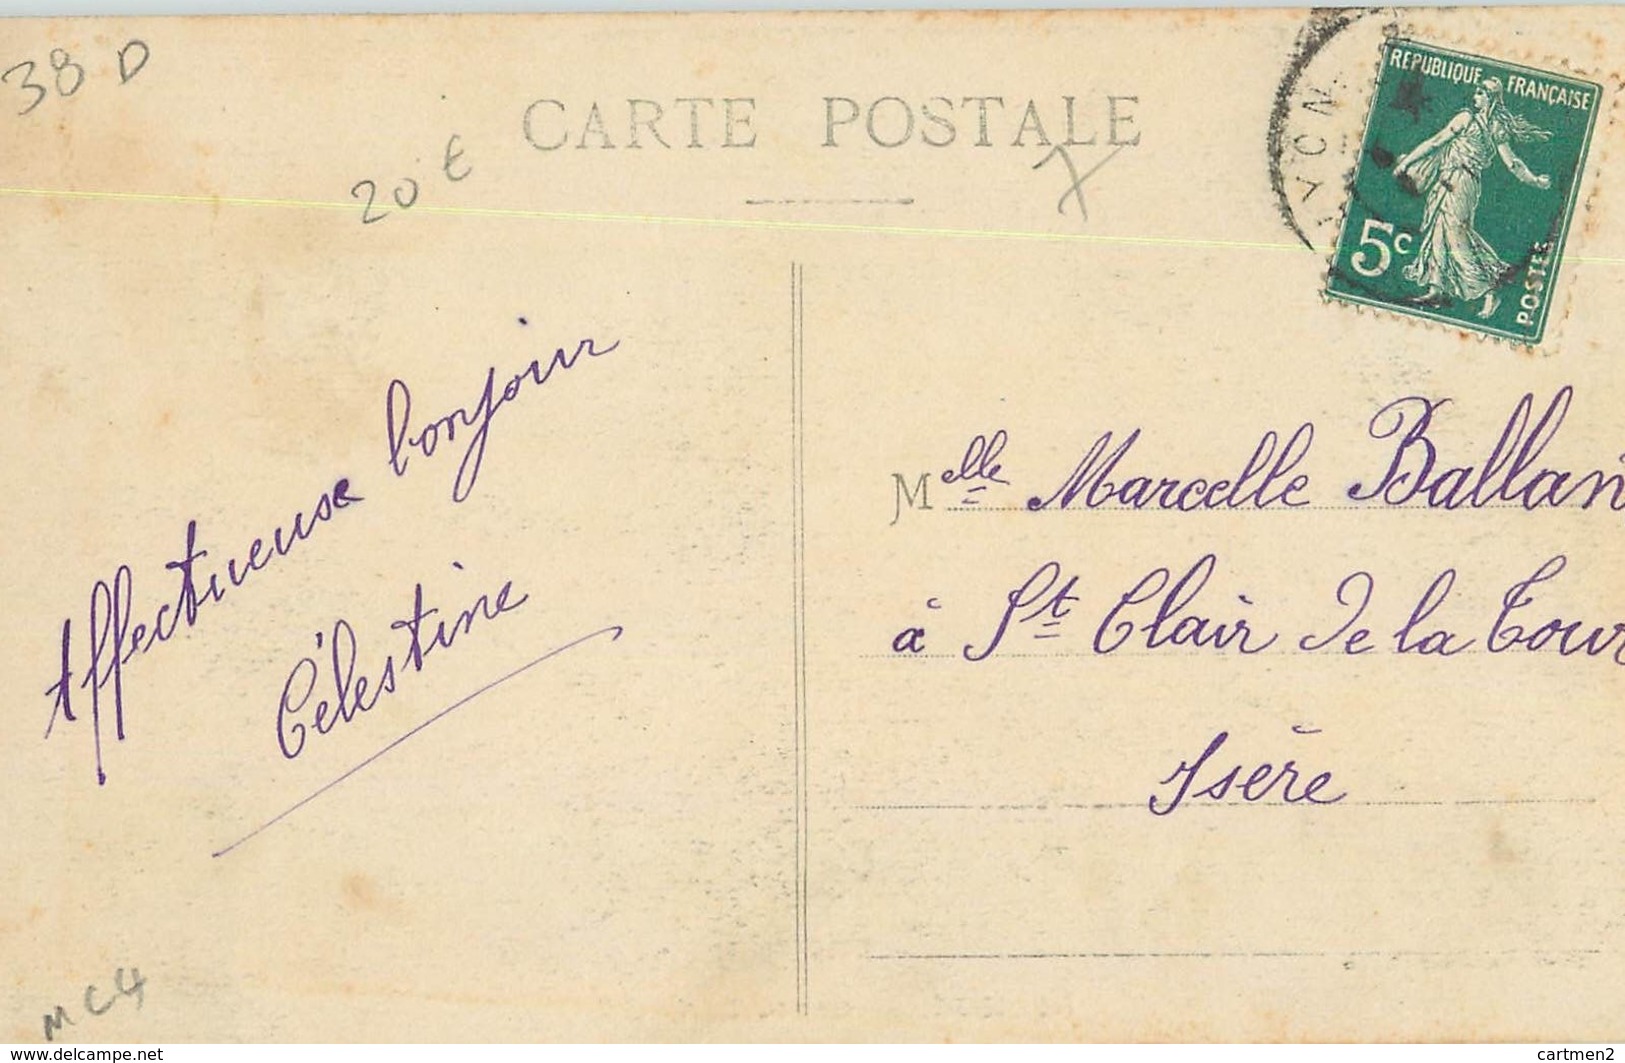 38 D
CARTE POSTALE
20 €
X
REPUBLIQUE FRANÇAISE
5c
POSTES
LYON
Affectueuse bonjour
Célestine
Melle Marcelle Ballan
à St Clair de la Tour
Isère
MC4
www.delcampe.net
cartmen2